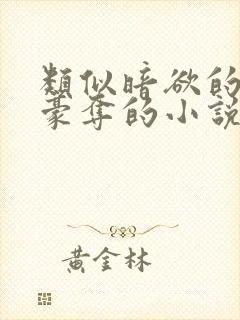 類似暗欲的
豪奪的小説
黃金林